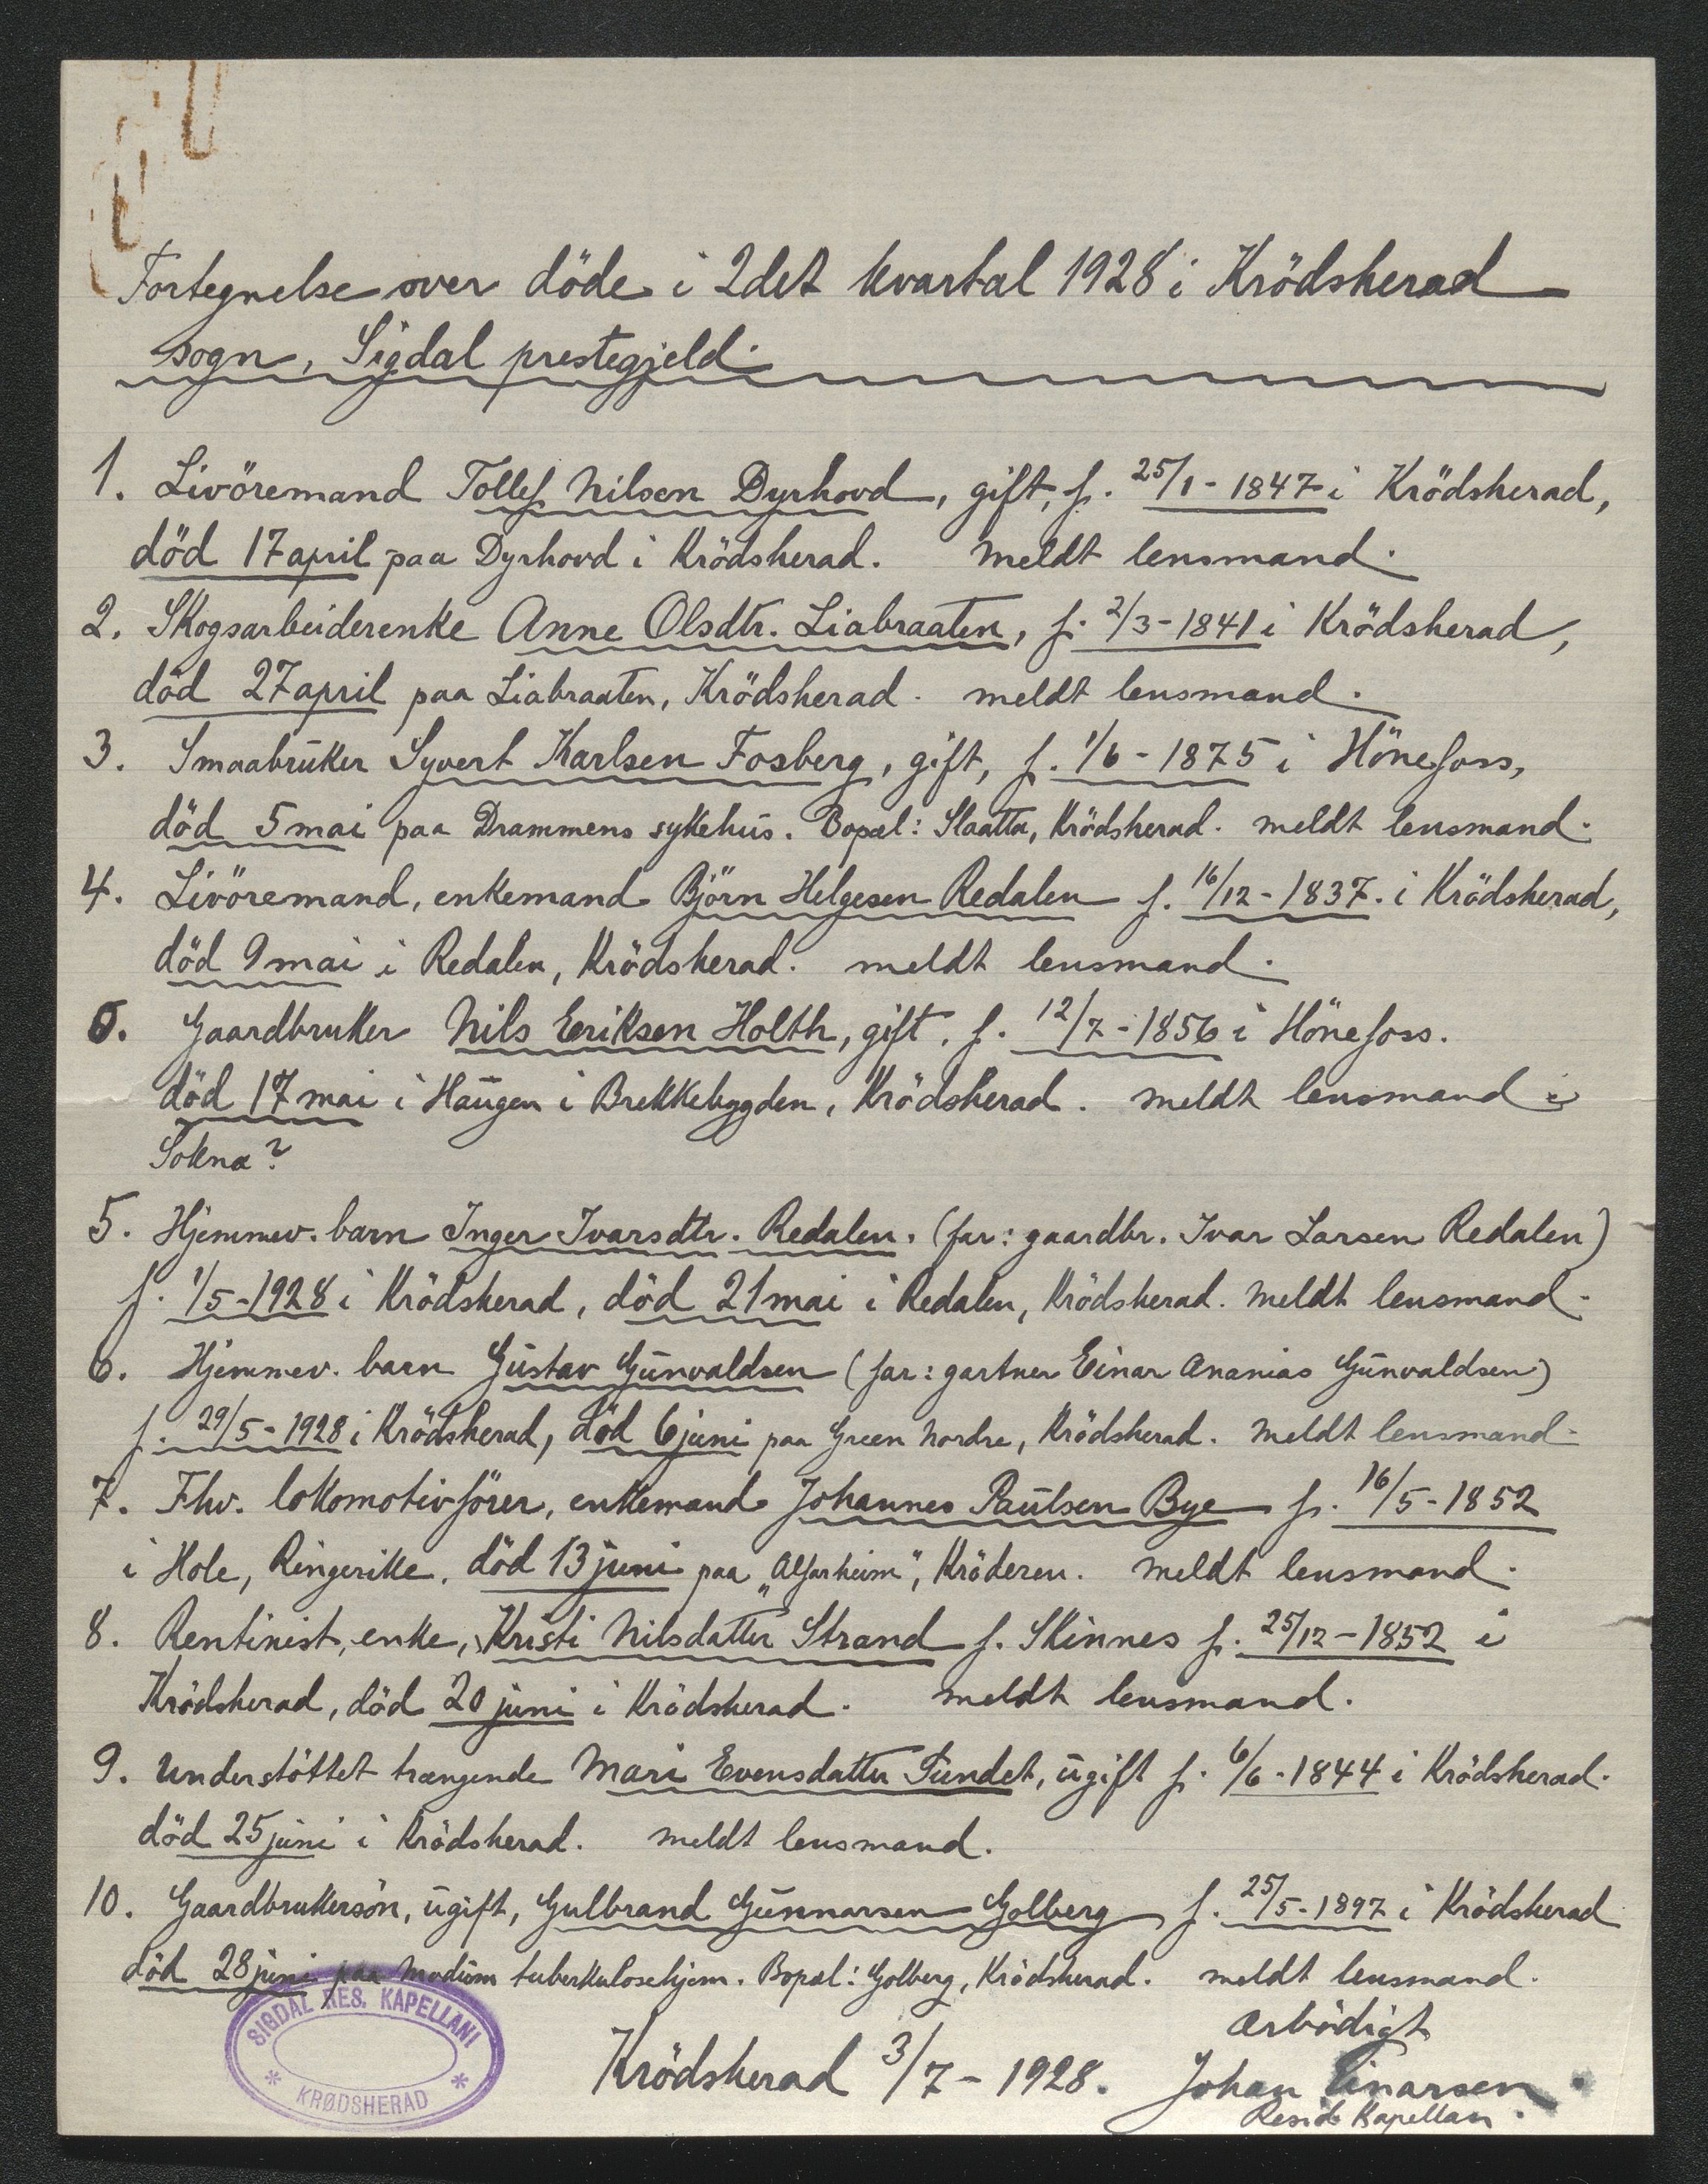 Fortegnelse over döde i 2det kvartal 1928 i Krödsherad
sogn, Sigdal prestegjeld.
1. Livöremand Tollef Nilsen Dyrhovd, gift, f. 25/1 - 1847 i Krödsherad,
död 17 april paa Dyrhovd i Krödsherad. meldt lensmand.
2. Skogsarbeiderenke Anne Olsdtr. Liabraaten, f. 2/3 - 1841 i Krödsherad,
död 27 april paa Liabraaten, Krödsherad. meldt lensmand.
3. Smaabruker Syvert Karlsen Fosberg, gift, f. 1/6 - 1875 i Hönefoss,
död 5 mai paa Drammens sykehus. Bopæl: Slaatta, Krödsherad. meldt lensmand.
4. Livöremand, enkemand Björn Helgesen Redalen f. 16/12 - 1837. i Krödsherad,
död 9 mai i Redalen, Krödsherad. meldt lensmand.
0. Gaardbruker Nils Eriksen Holth, gift, f. 12/7 - 1856 i Hönefoss.
död 17 mai i Haugen i Brekkebygden, Krödsherad. meldt lensmand i
Sokna?
5. Hjemmev. barn Inger Ivarsdtr. Redalen. (far: gaardbr. Ivar Larsen Redalen)
f. 1/5 - 1928 i Krödsherad, död 21 mai i Redalen, Krödsherad. meldt lensmand.
6. Hjemmev. barn Gustav Gunvaldsen (far: gartner Einar Ananias Gunvaldsen)
f. 29/5 - 1928 i Krödsherad, död 6 juni paa Green nordre, Krödsherad. meldt lensmand.
7. Fhv. lokomotivförer, enkemand Johannes Paulsen Bye f. 16/5 - 1852
i Hole, Ringerike. död 13 juni paa „Alfarheim", Kröderen. meldt lensmand.
8. Rentinist, enke, Kristi Nilsdatter Strand f. Skinnes f. 25/12 - 1852 i
Krödsherad, död 20 juni i Krödsherad. meldt lensmand.
9. Understöttet trængende Mari Evensdatter Sundet, ugift f. 6/6 - 1844 i Krödsherad.
död 25 juni i Krödsherad. meldt lensmand.
10. Gaardbrukersön, ugift, Gulbrand Gunnarsen Golberg f. 25/5 - 1897 i Krödsherad
död 28 juni paa Modum tuberkulosehjem. Bopæl: Golberg, Krödsherad. meldt lensmand.
SIGDAL RES. KAPELLANI
* KRØDSHERAD *
Krödsherad 3/7 - 1928.
Arbödigt
Johan Einarsen
Resid. Kapellan.